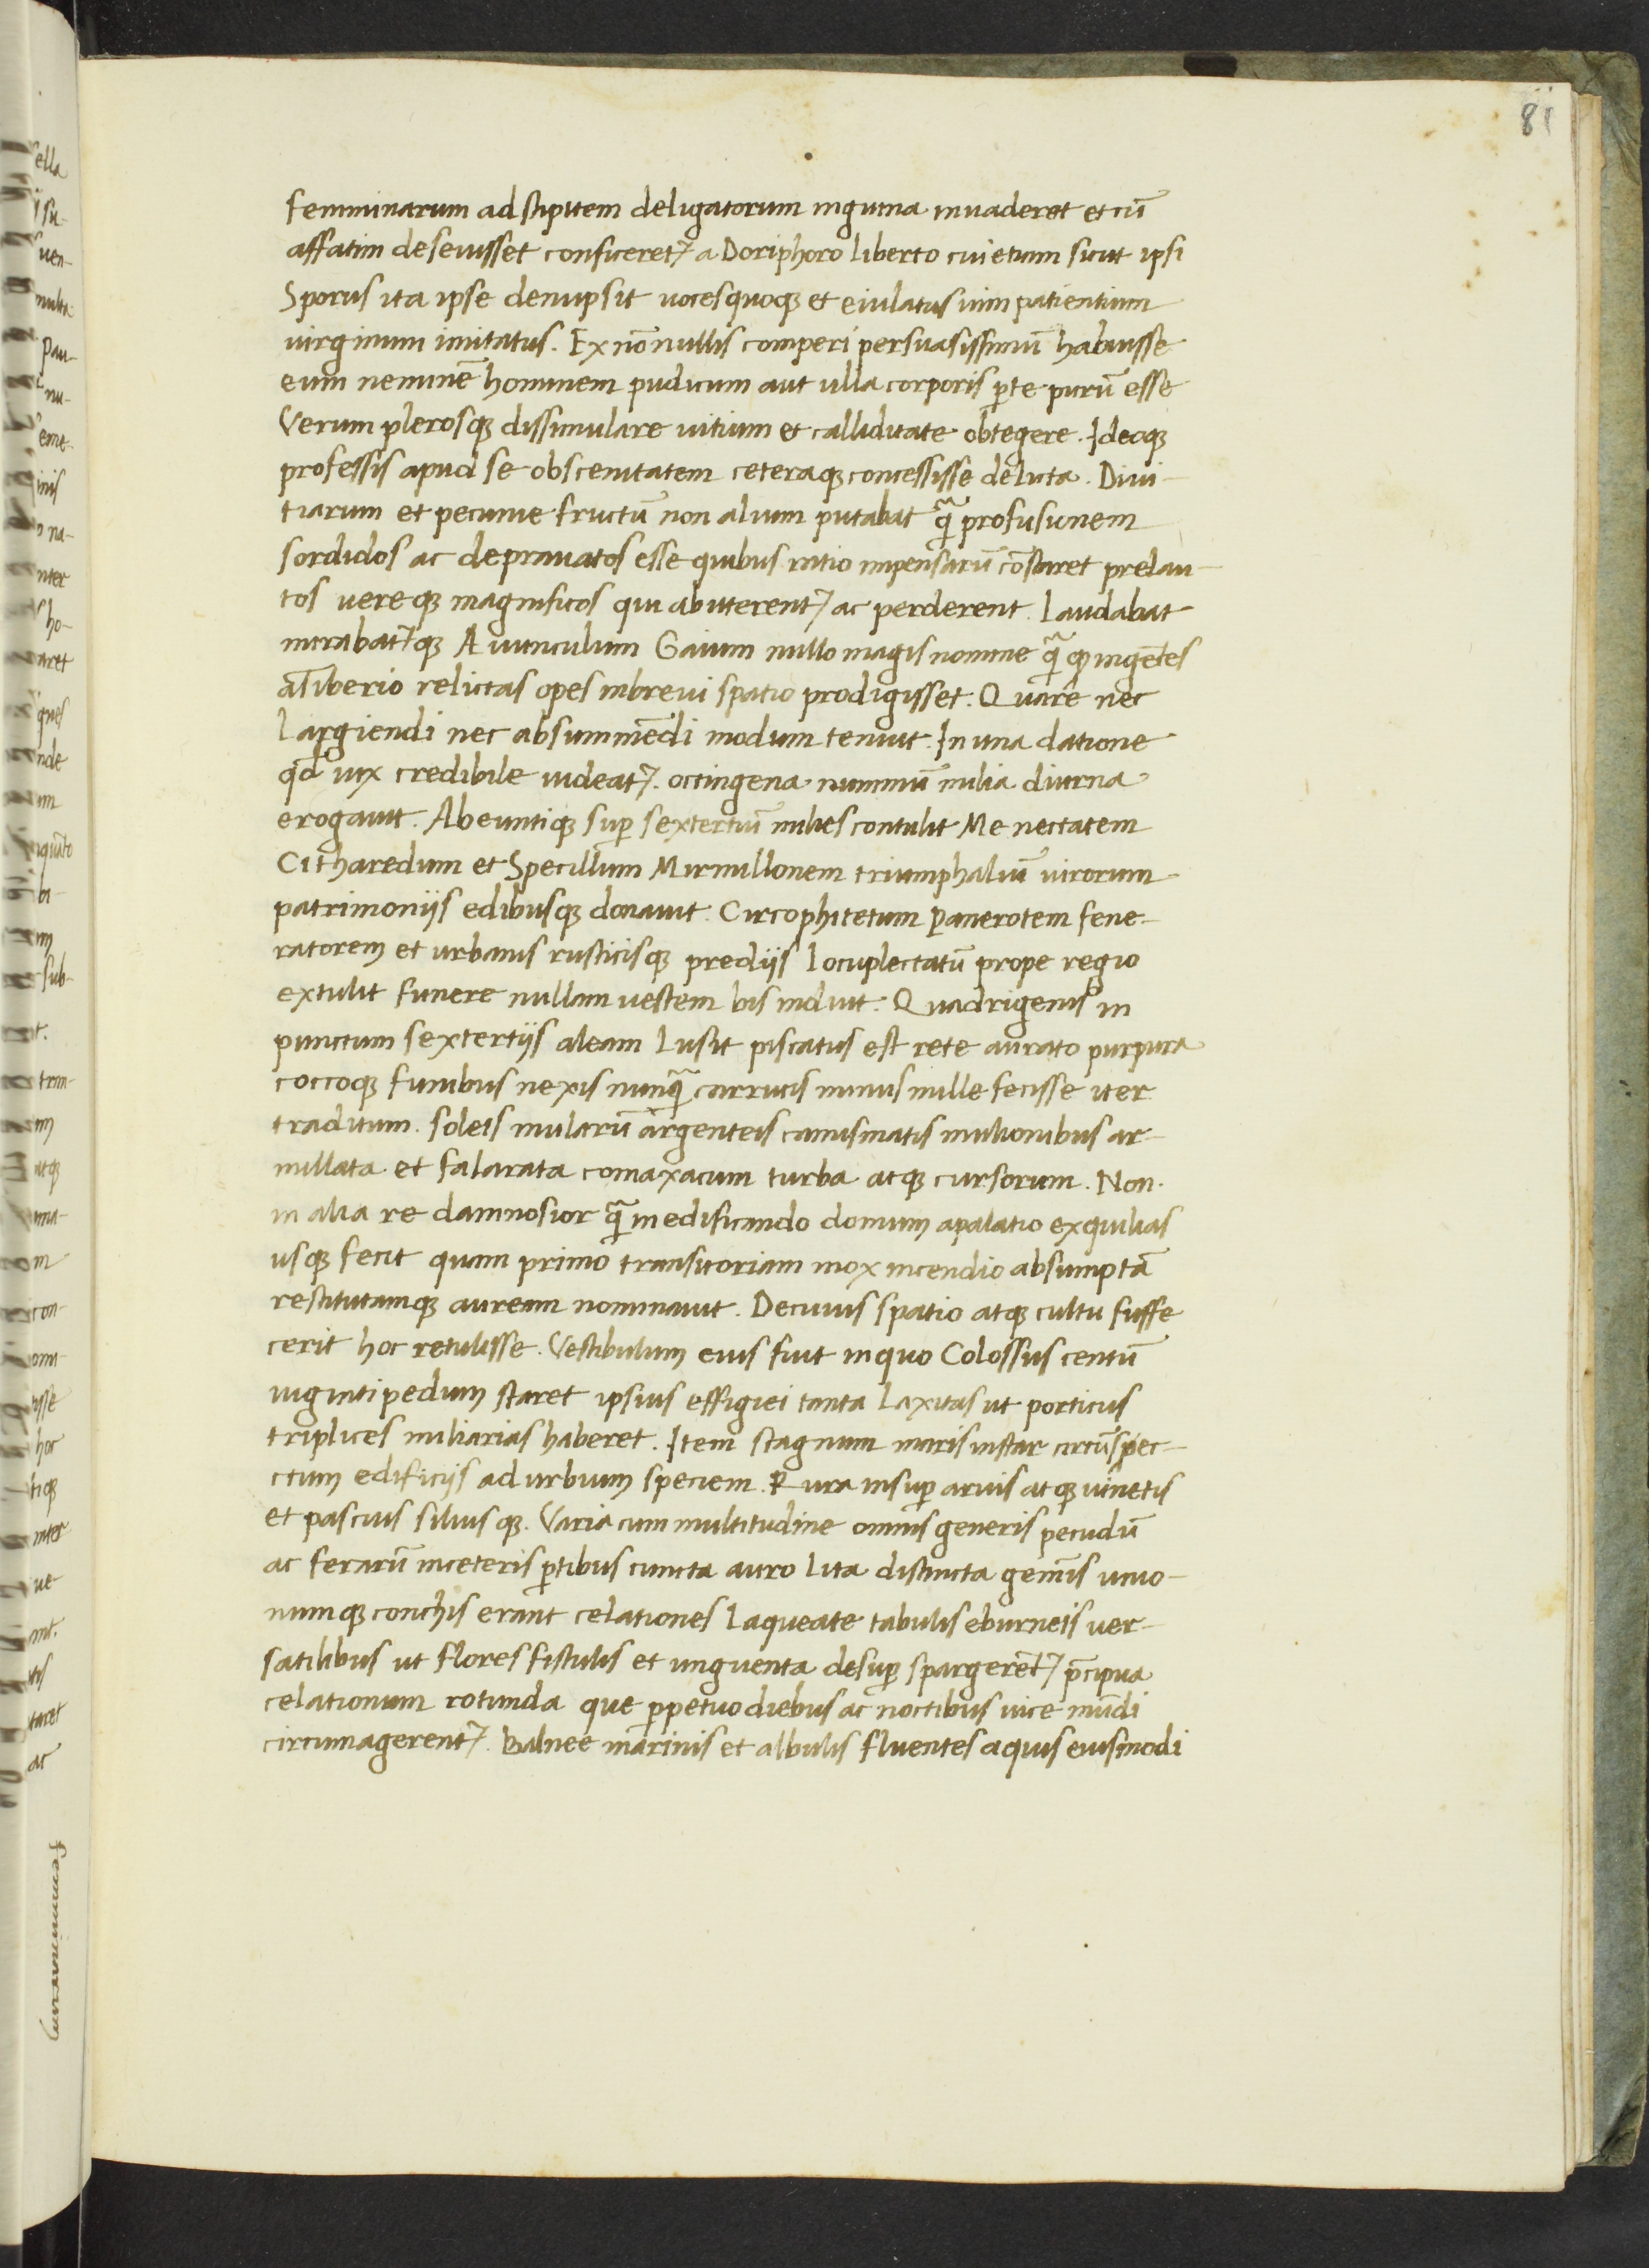 81
femminarum ad stipitem deligatorum inguina inuaderet et cū
affatim deseuisset conficeret⁊ a Doriphoro liberto cui etiam sicut ipsi
Sporus ita ipse denupsit uoces quoqꝫ et eiulatus uim patientium
uirginum imitatus. Ex nōnullis comperi persuasissimū habuisse
eum neminē hominem pudicum aut ulla corporis ꝑte purū esse
Verum plerosqꝫ dissimulare uitium et calliditate obtegere. Ideoqꝫ
professis apud se obscenitatem ceteraqꝫ concessisse delicta. Diui-
tiarum et pecunie fructū non alium putabat q̃ profusionem
sordidos ac deprauatos esse quibus ratio inpensarū cōstaret prelau-
tos uereqꝫ magnificos qui abuterent⁊ ac perderent. Laudabat
mirabat⁊qꝫ Auunculum Gaium nullo magis nomine q̃ ꝙ ingētes
a Tiberio relictas opes inbreui spatio prodigisset. Quare nec
largiendi nec absummēdi modum tenuit. In una datione
qd̄ uix credibile uideat⁊. octingena nummū milia diurna
erogauit. Abeuntiqꝫ suꝑ sextertiū milies contulit Me nectatem
Citharedum et Specillum Mirmillonem triumphaliū uirorum
patrimoniis edibusqꝫ donauit. Circophitetum panerotem fene-
ratorem et urbanis rusticisqꝫ prediis locuplectatū prope regio
extulit funere nullam uestem bis induit. Quadrigenis in
punctum sextertiis aleam lusit piscatus est rete aurato purpura
coccoqꝫ funibus nexis nunq̃ carrucis minus mille fecisse iter
traditum. soleis mularū argenteis canusinatis mulionibus ar-
millata et falarata comaxacum turba atqꝫ cursorum. Non
in alia re damnosior q̃ in edificando domum apalatio exquilias
usqꝫ fecit quam primo transitoriam mox incendio absumptā
restitutamqꝫ auream nominauit. Decuius spatio atqꝫ cultu suffe
cerit hoc retulisse. Vestibulum eius fuit inquo Colossus centū
uiginti pedum staret ipsius effigiei tanta laxitas ut porticus
triplices miliarias haberet. Item stagnum maris instar circūspec-
ctum edificiis ad urbium speciem. Rura insuꝑ aruis atqꝫ uinetis
et pascuis siluisqꝫ. Varia cum multitudine omnis generis pecudū
ac ferarū inceteris ꝑtibus cuncta auro lita distincta gemīs unio-
numqꝫ conchis erant celationes laqueate tabulis eburneis uer-
satilibus ut flores fistulis et unguenta desuꝑ spargerēt⁊ p̄cipua
celationum rotunda que ꝑpetuo diebus ac noctibus uice mūdi
circumagerent⁊. Balnee marinis et albulis fluentes aquis eiusmodi
femminarum